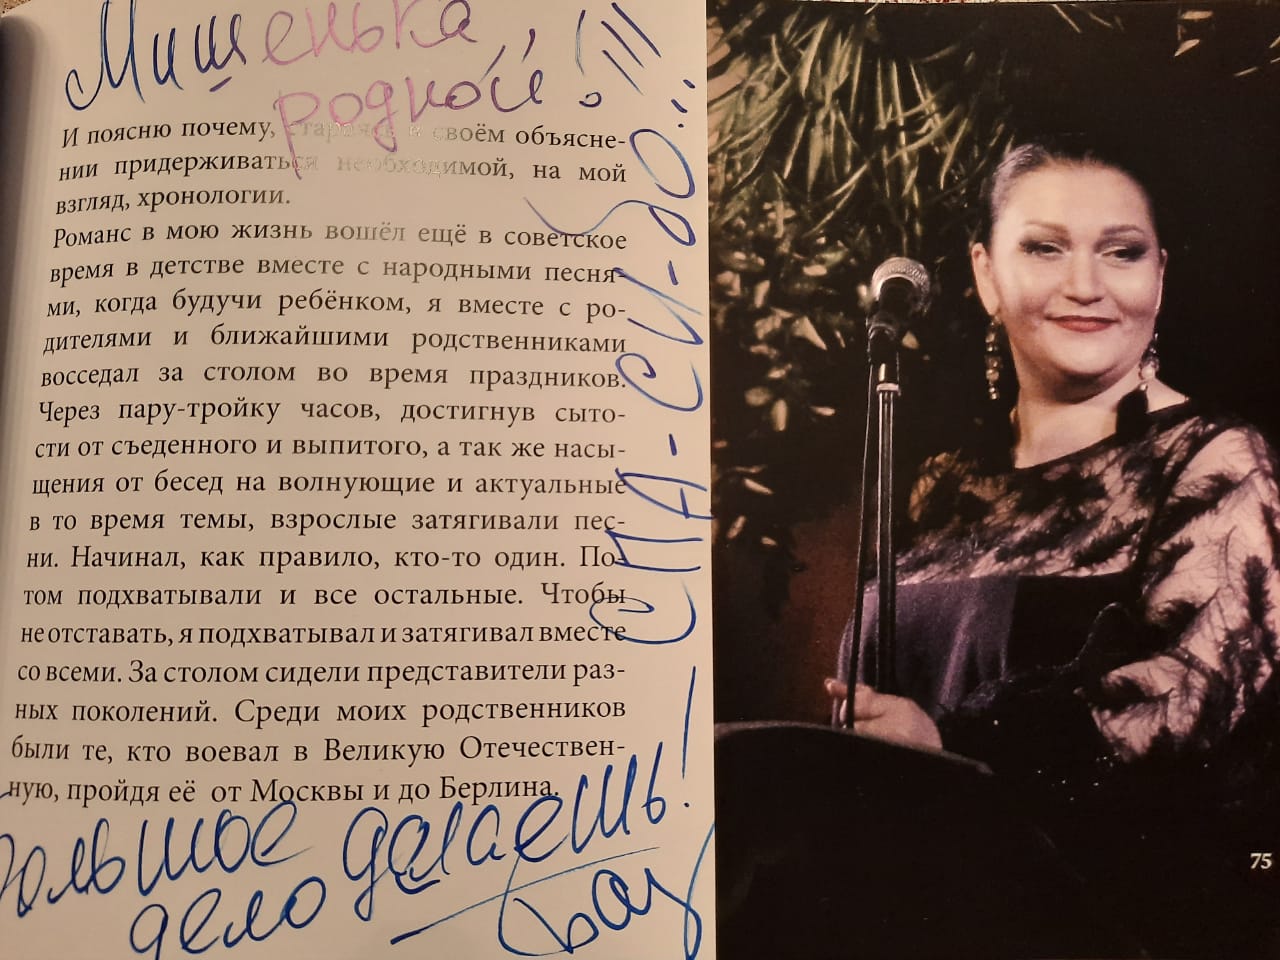 Мишенька
родной!!!!
И поясню почему, стараясь в своём объясне-
нии придерживаться необходимой, на мой
взгляд, хронологии.
Романс в мою жизнь вошёл ещё в советское
время в детстве вместе с народными песня-
ми, когда будучи ребёнком, я вместе с ро-
дителями и ближайшими родственниками
восседал за столом во время праздников.
Через пару-тройку часов, достигнув сыто-
сти от съеденного и выпитого, а так же насы-
щения от бесед на волнующие и актуальные
в то время темы, взрослые затягивали пес-
ни. Начинал, как правило, кто-то один. По-
том подхватывали и все остальные. Чтобы
не отставать, я подхватывал и затягивал вместе
со всеми. За столом сидели представители раз-
ных поколений. Среди моих родственников
были те, кто воевал в Великую Отечествен-
ную, пройдя её от Москвы и до Берлина.
СПА-СИ-БО..
Большое
дело делаешь!
75